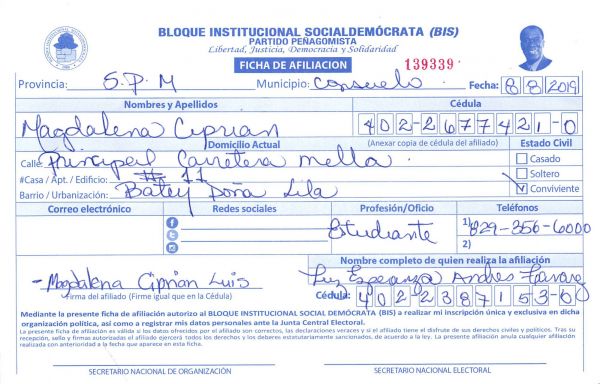 BLOQUE INSTITUCIONAL SOCIALDEMÓCRATA (BIS)
PARTIDO PEÑAGOMISTA
Libertad, Justicia, Democracia y Solidaridad
FICHA DE AFILIACION 139339
Provincia: S.P.M Municipio: Consuelo Fecha: 8 8 2019
Nombres y Apellidos Cédula
Magdalena Ciprian 402-2677421-0
Domicilio Actual (Anexar copia de cédula del afiliado) Estado Civil
Calle: Principal Carretera mella. Casado
#Casa / Apt. / Edificio: # 11 Soltero
Barrio / Urbanización: Batey Doña Lila Conviviente
Correo electrónico Redes sociales Profesión/Oficio Teléfonos
Estudiante 1) 829-356-6000
2)
Nombre completo de quien realiza la afiliación
- Magdalena Ciprian Luis Luz Esperanza Andres Tavarez
Firma del afiliado (Firme igual que en la Cédula) Cédula: 4022387153-6
Mediante la presente ficha de afiliación autorizo al BLOQUE INSTITUCIONAL SOCIAL DEMÓCRATA (BIS) a realizar mi inscripción única y exclusiva en dicha
organización política, así como a registrar mis datos personales ante la Junta Central Electoral.
La presente ficha de afiliación es válida si los datos ofrecidos por el afiliado son correctos, las declaraciones veraces y si el afiliado tiene el disfrute de sus derechos civiles y políticos. Tras su
recepción, sello y firmas autorizadas el afiliado ejercerá todos los derechos y los deberes estatutariamente sancionados, de acuerdo a la ley. La presente afiliación anula cualquier afiliación
realizada con anterioridad a la fecha que aparece en esta ficha.
SECRETARIO NACIONAL DE ORGANIZACIÓN SECRETARIO NACIONAL ELECTORAL